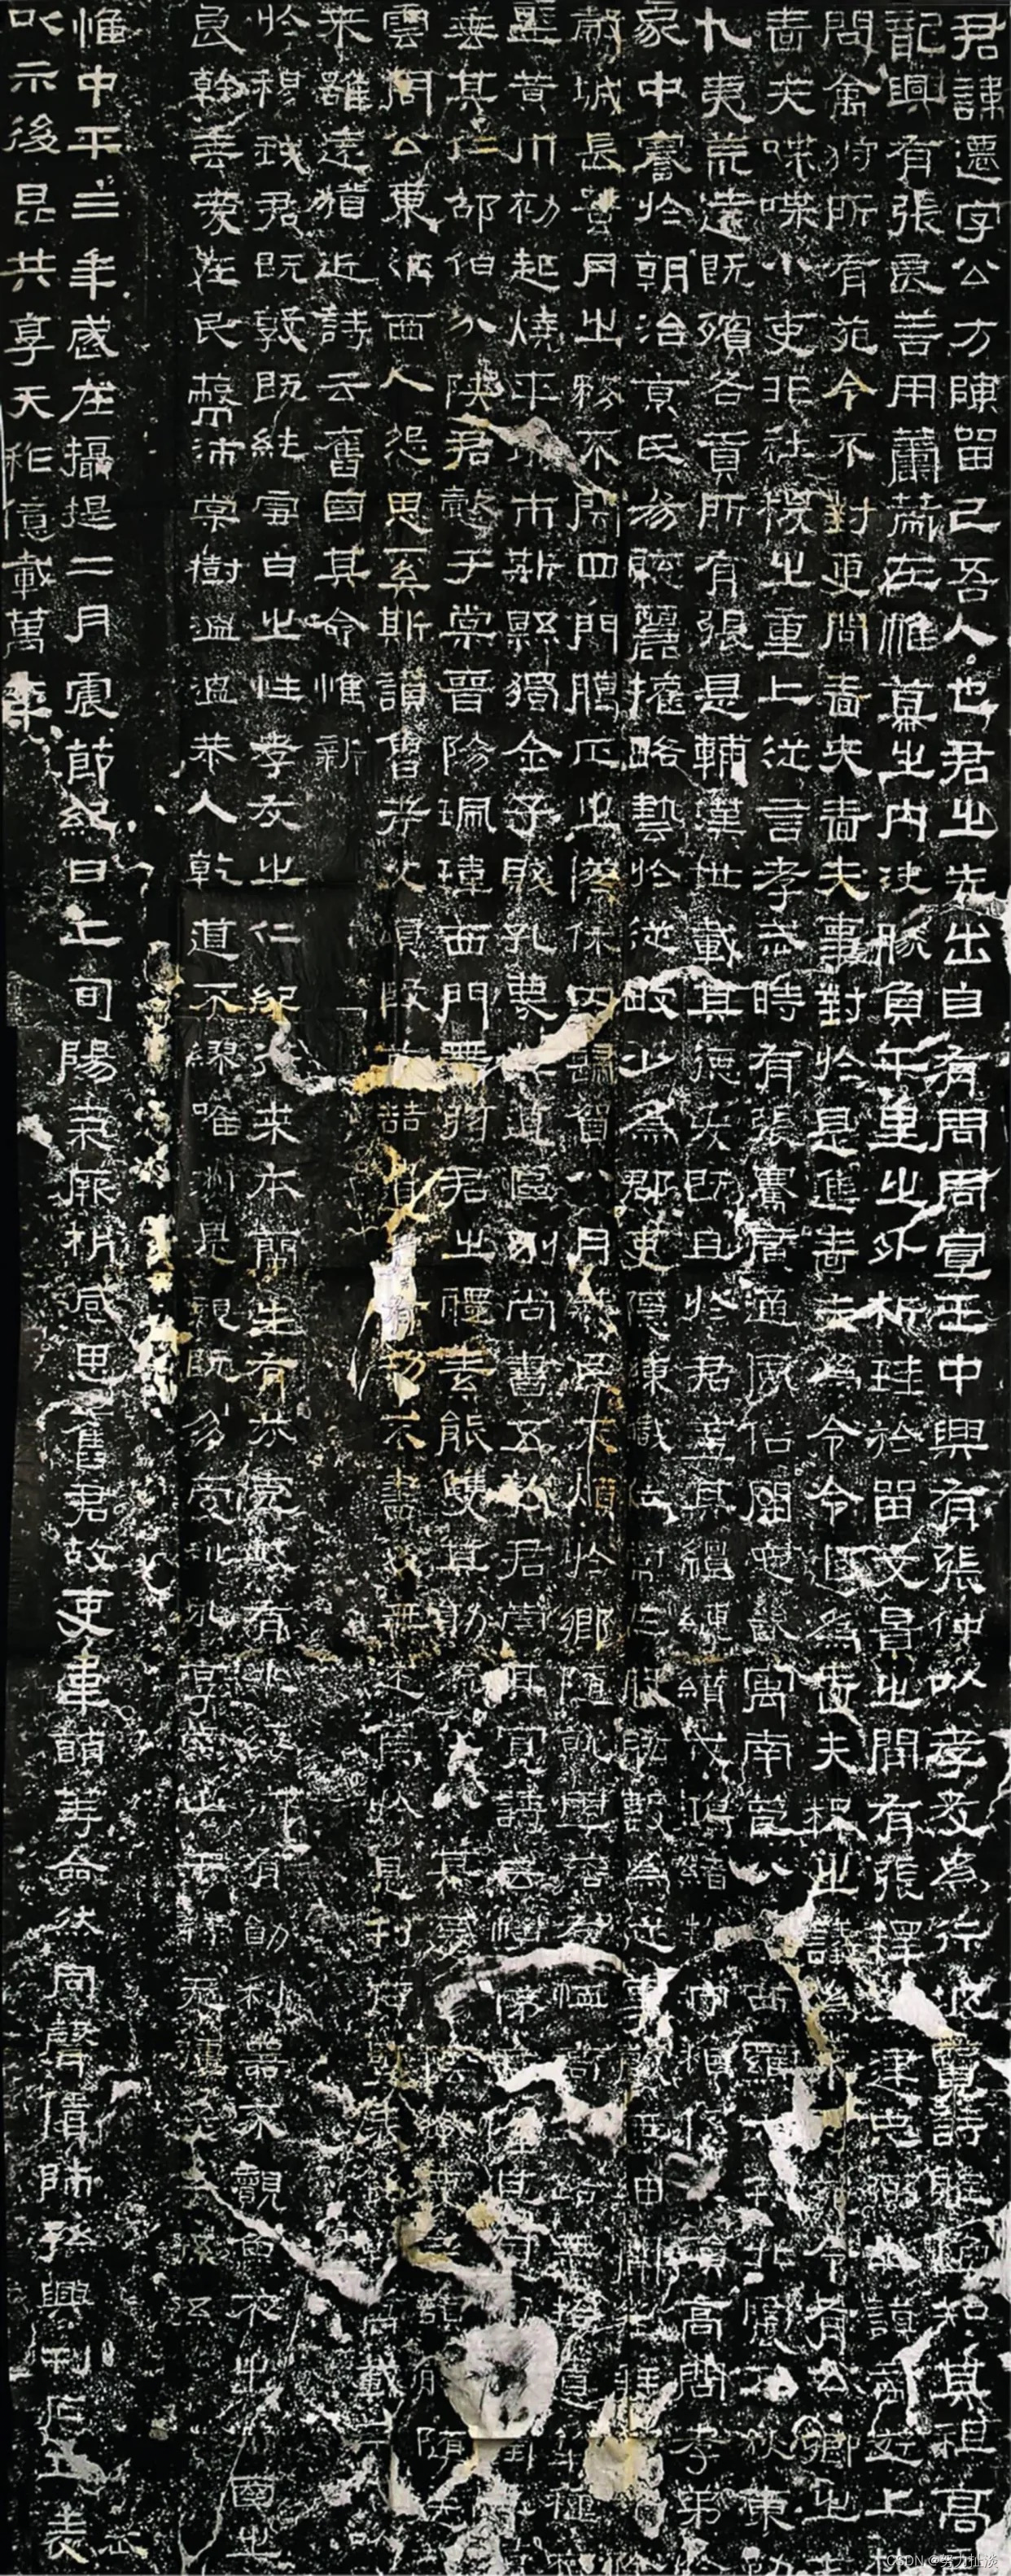 君諱遷字公方陳留己吾人也君之先出自有周周宣王中興有張仲以孝友為行披覽詩雅煥知其祖高
龍興有張良善用籌策在帷幕之內決勝負千里之外析珪於留文景之間有張釋之建忠弼之謨帝遊上
問禽狩所有苑令不對更問嗇夫嗇夫事對於是進嗇夫為令令退為嗇夫釋之議為不可苑令有公卿之
嗇夫喋喋小吏非社稷之重上從言孝武時有張騫廣通風俗開定畿寓南苞八蠻西羈六戎北震五狄東勤
九夷荒遠既殯各貢所有張是輔漢世載其德爰既且於君蓋其繵縺纘戎鴻緒牧守相係不殞高問孝弟
家中謇於朝治京氏易聰麗權略藝於從畋少為郡吏隱練職位常在股肱數為從事聲無細聞徵拜
城長蠶月之務不閉四門臘正之僚休囚歸賀八月筭民不煩於鄉隨就虛落存恤高年路無拾遺犁種
黃巾初起燒平城市斯縣獨全子賤孔蔑其道區別尚書五教君崇其寬詩云愷悌君隆其恩東里
垂其仁邵伯分陝君懿于棠晉陽珮瑋西門帶弦君之體素能雙其勛流化八基遷蕩陰令吏民頡頏隨送
雲周公東征西人怨思奚斯讚魯考父頌殷前喆遺芳有功不書後無述焉於是刊石豎表銘勒萬載三
來雖遠猶近詩云舊國其命惟新
於穆我君既敦既純雪白之性孝友之仁紀行求本蘭生有芬克岐有兆綏御有勛利器不覿魚不出淵國之
良幹垂愛在民蔽沛棠樹溫溫恭人乾道不繆唯淑是親既多受祉永享南山干祿無疆子子孫孫
惟中平三年歲在攝提二月震節紀日上旬陽氣厥析感思舊君故吏韋萌等僉然同聲賃師孫興刊石立表
以示後昆共享天祚億載萬年
CSDN @努力扯淡